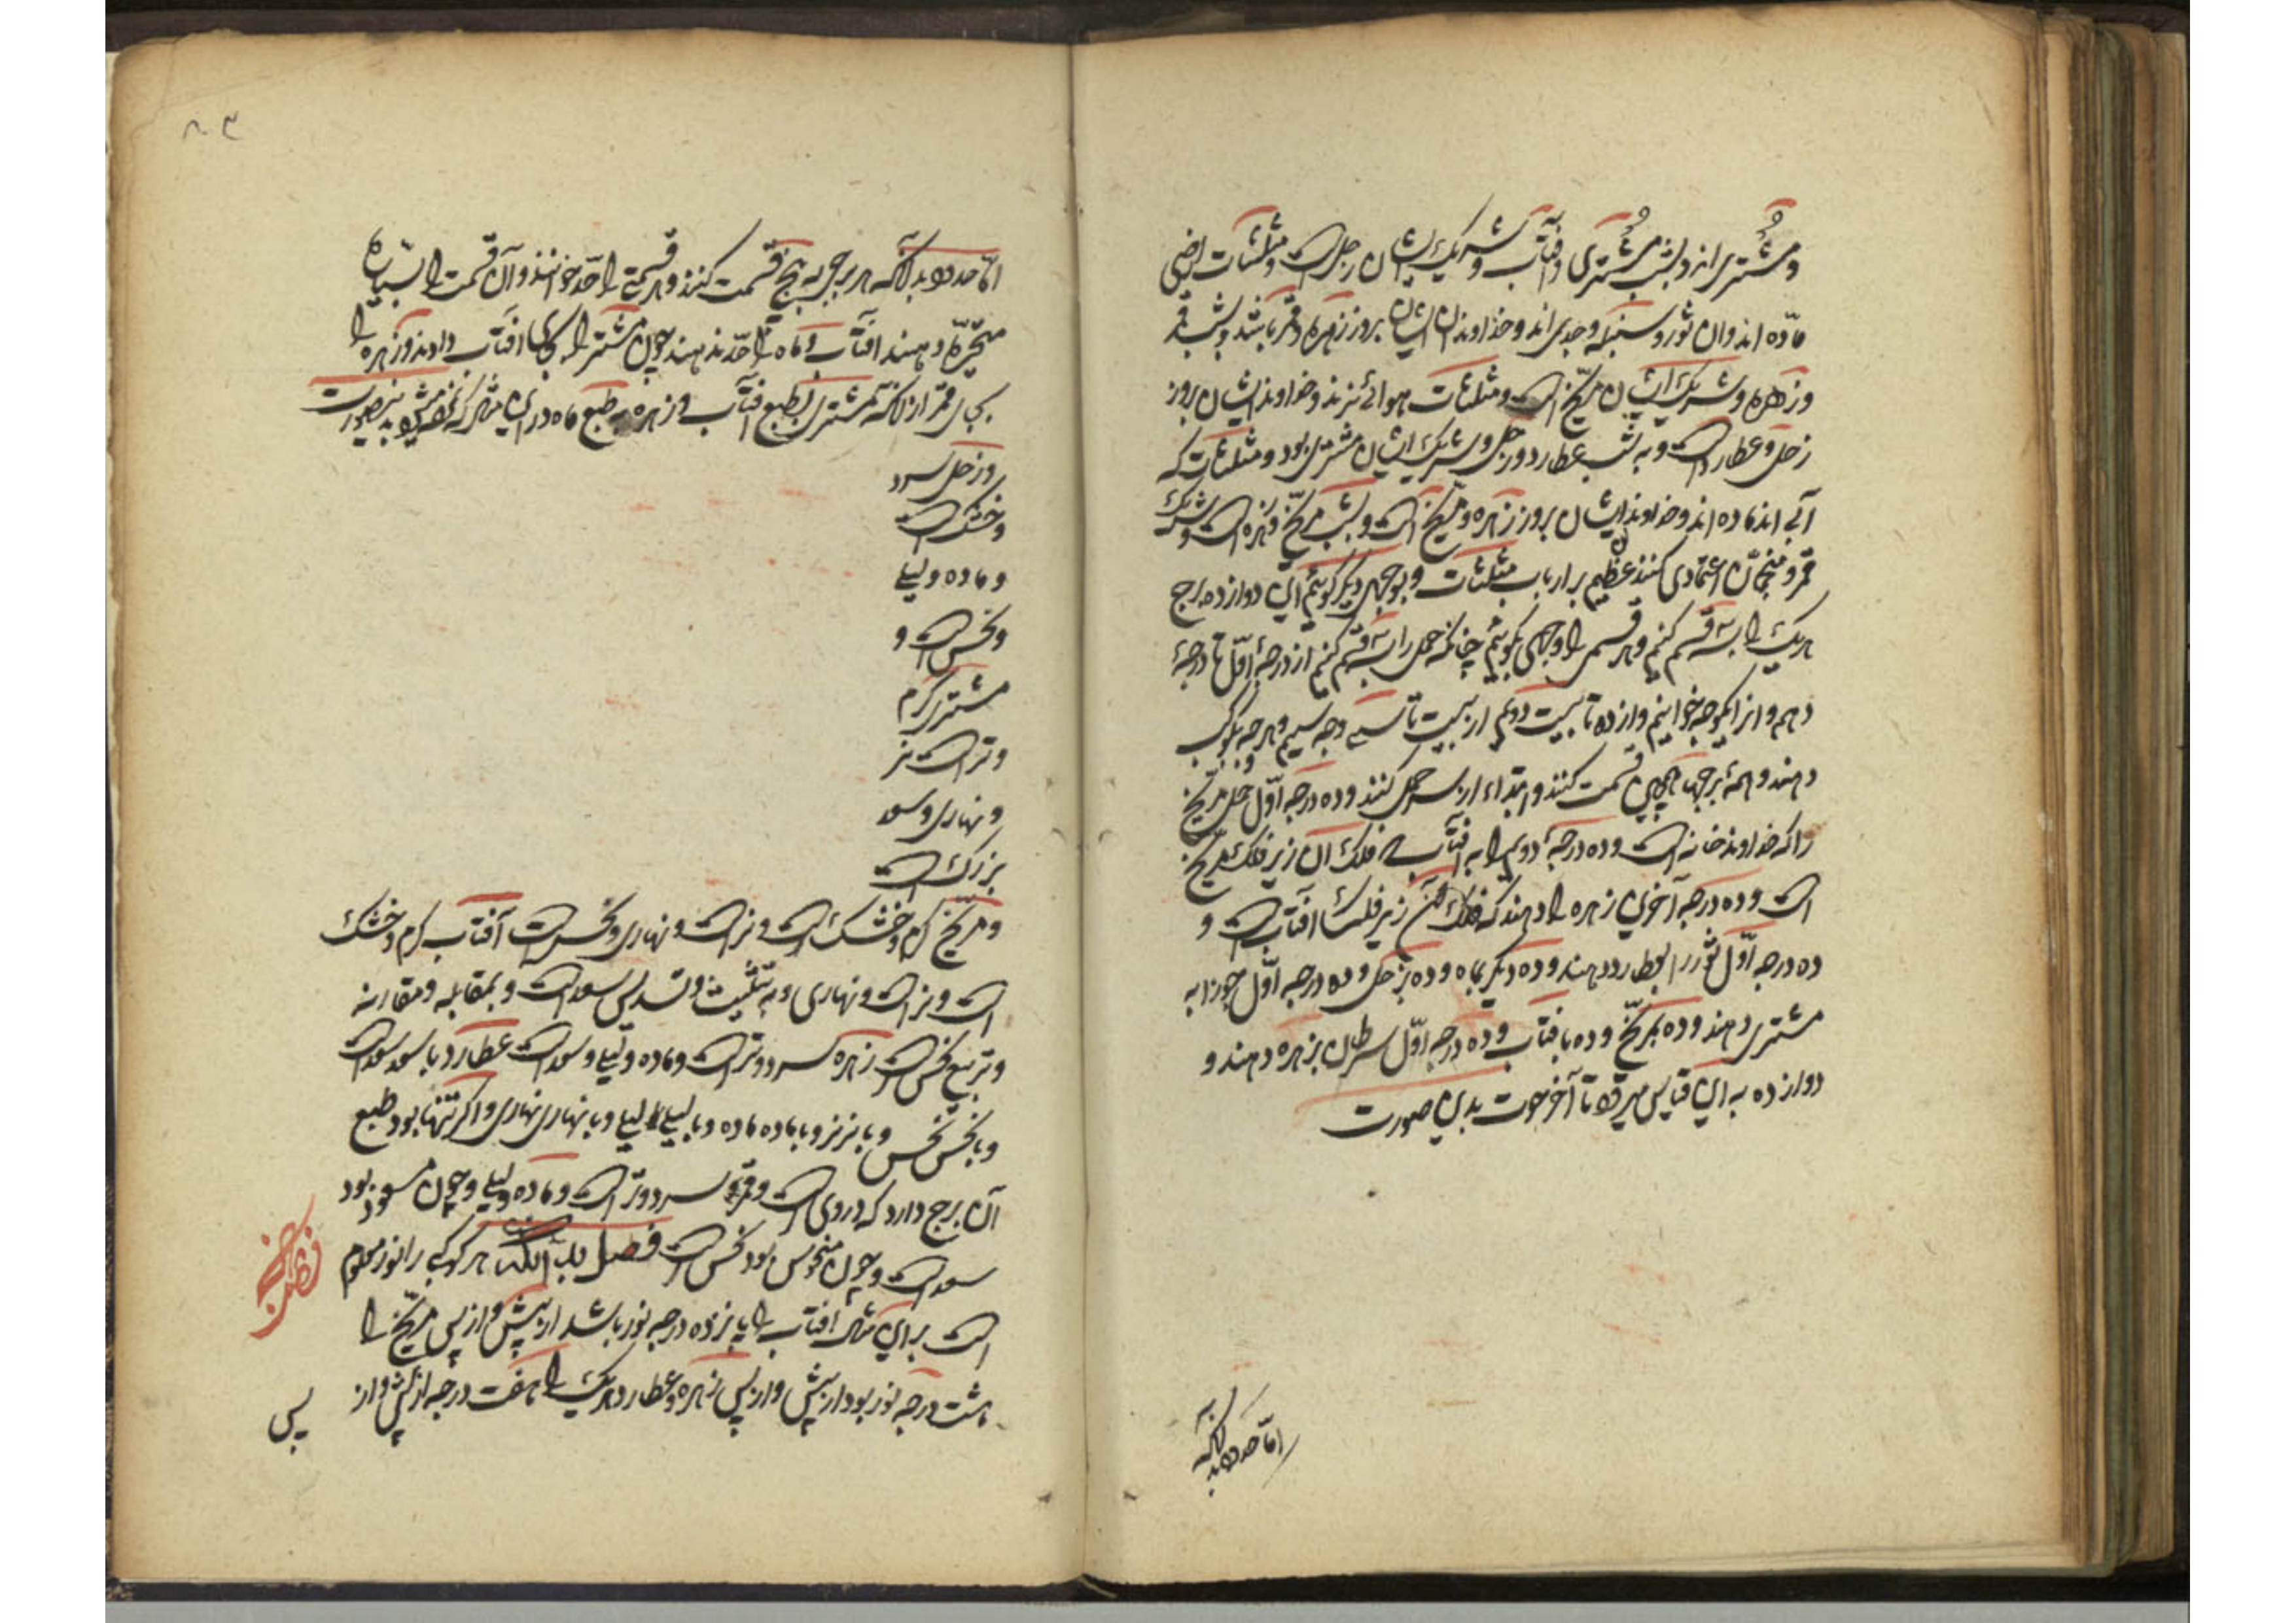 و مشتری اند و بشب مشتری و آفتاب و شریک ایشان زحل است و مثلثات ارضی
ماده اند و آن ثور و سنبله و جدی اند و خداوندان ایشان بروز زهره و قمر باشند و بشب قمر
و زهره و شریک ایشان مریخ است و مثلثات هوائی نرند و خداوند ایشان بروز
زحل و عطارد است و به شب عطارد و زحل و شریک ایشان مشتری بود و مثلثات که
آبی اند ماده اند و خداوند ایشان بروز زهره و مریخ است و بشب مریخ و زهره است و شریک
قمر و منجمان اعتمادی کنند عظیم بر ارباب مثلثات و بوجهی دیگر گوئیم این دوازده برج
هر یک را بسه قسم کنیم و هر قسمی را وجهی گوئیم چنانکه حمل را بسه قسم کنیم از درجهٔ اوّل تا درجهٔ
دهم و انرا یکوجه خوانیم و از ده تا بیست دویم از بیست تا سی وجه سیم و هر وجه بکوکب
دهند و همه برجها همچنین قسمت کنند و ابتداء از سر حمل کنند و ده درجه اوّل حمل مریخ
را که خداوند خانه است و ده درجهٔ دویم را به آفتاب که فلک آن زیر فلک مریخ
است و ده درجه آخرین زهره را دهند که فلک آن زیر فلک آفتابست و
ده درجه اوّل ثور را بعطارد دهند و ده دیگر بماه و ده بزحل و ده درجه اوّل جوزا به
مشتری دهند و ده بمریخ و ده بآفتاب و ده درجه اوّل سرطان بزهره دهند و
دوازده به این قیاس میرود تا آخر حوت بدین صورت
اما حدود بدانکه
۸۰۳
امّا حدود بدانکه هر برجی به پنج قسمت کنند و هر قسمتی را حدّ خوانند و آن قسمت را بسیاره
متحیّره دهند آفتاب و ماه را حدّ ندهند چون مشتری را بجای آفتاب دادند و زهره را
بجای قمر از آنکه مشتری بطبع آفتاب و زهره به طبع ماه در این مثال که نموده میشود بدینصورت
و زحل سرد
و خشک است
و ماده و لیلی
و نحس است و
مشتری گرم
و تر است نر
و نهاری و سعد
بزرک است
و مریخ گرم و خشک است و نر است و نهاری و نحس است آفتاب گرم و خشک
است و نر است و نهاری و به تثلیث و تسدیس سعد است و بمقابله و مقارنه
و تربیع نحس است زهره سرد و تر است و ماده و لیلی و سعد است عطارد با سعد سعد است
و با نحس نحس و با نر نر و با ماده ماده و با لیلی لیلی و با نهاری نهاری و اگر تنها بود طبع
آن برج دارد که در وی است و قمر سرد و تر است و ماده و لیلی و چون مسعود بود
سعد است و چون منحوس بود نحس است فصل بدانکه هر کوکبی را نور معلوم
است بر این مثال آفتاب را پانزده درجه نور باشد از پیش و از پس مریخ را
هشت درجه نور بود از پیش و از پس زهره و عطارد هر یک را هفت درجه از پیش و از
پس